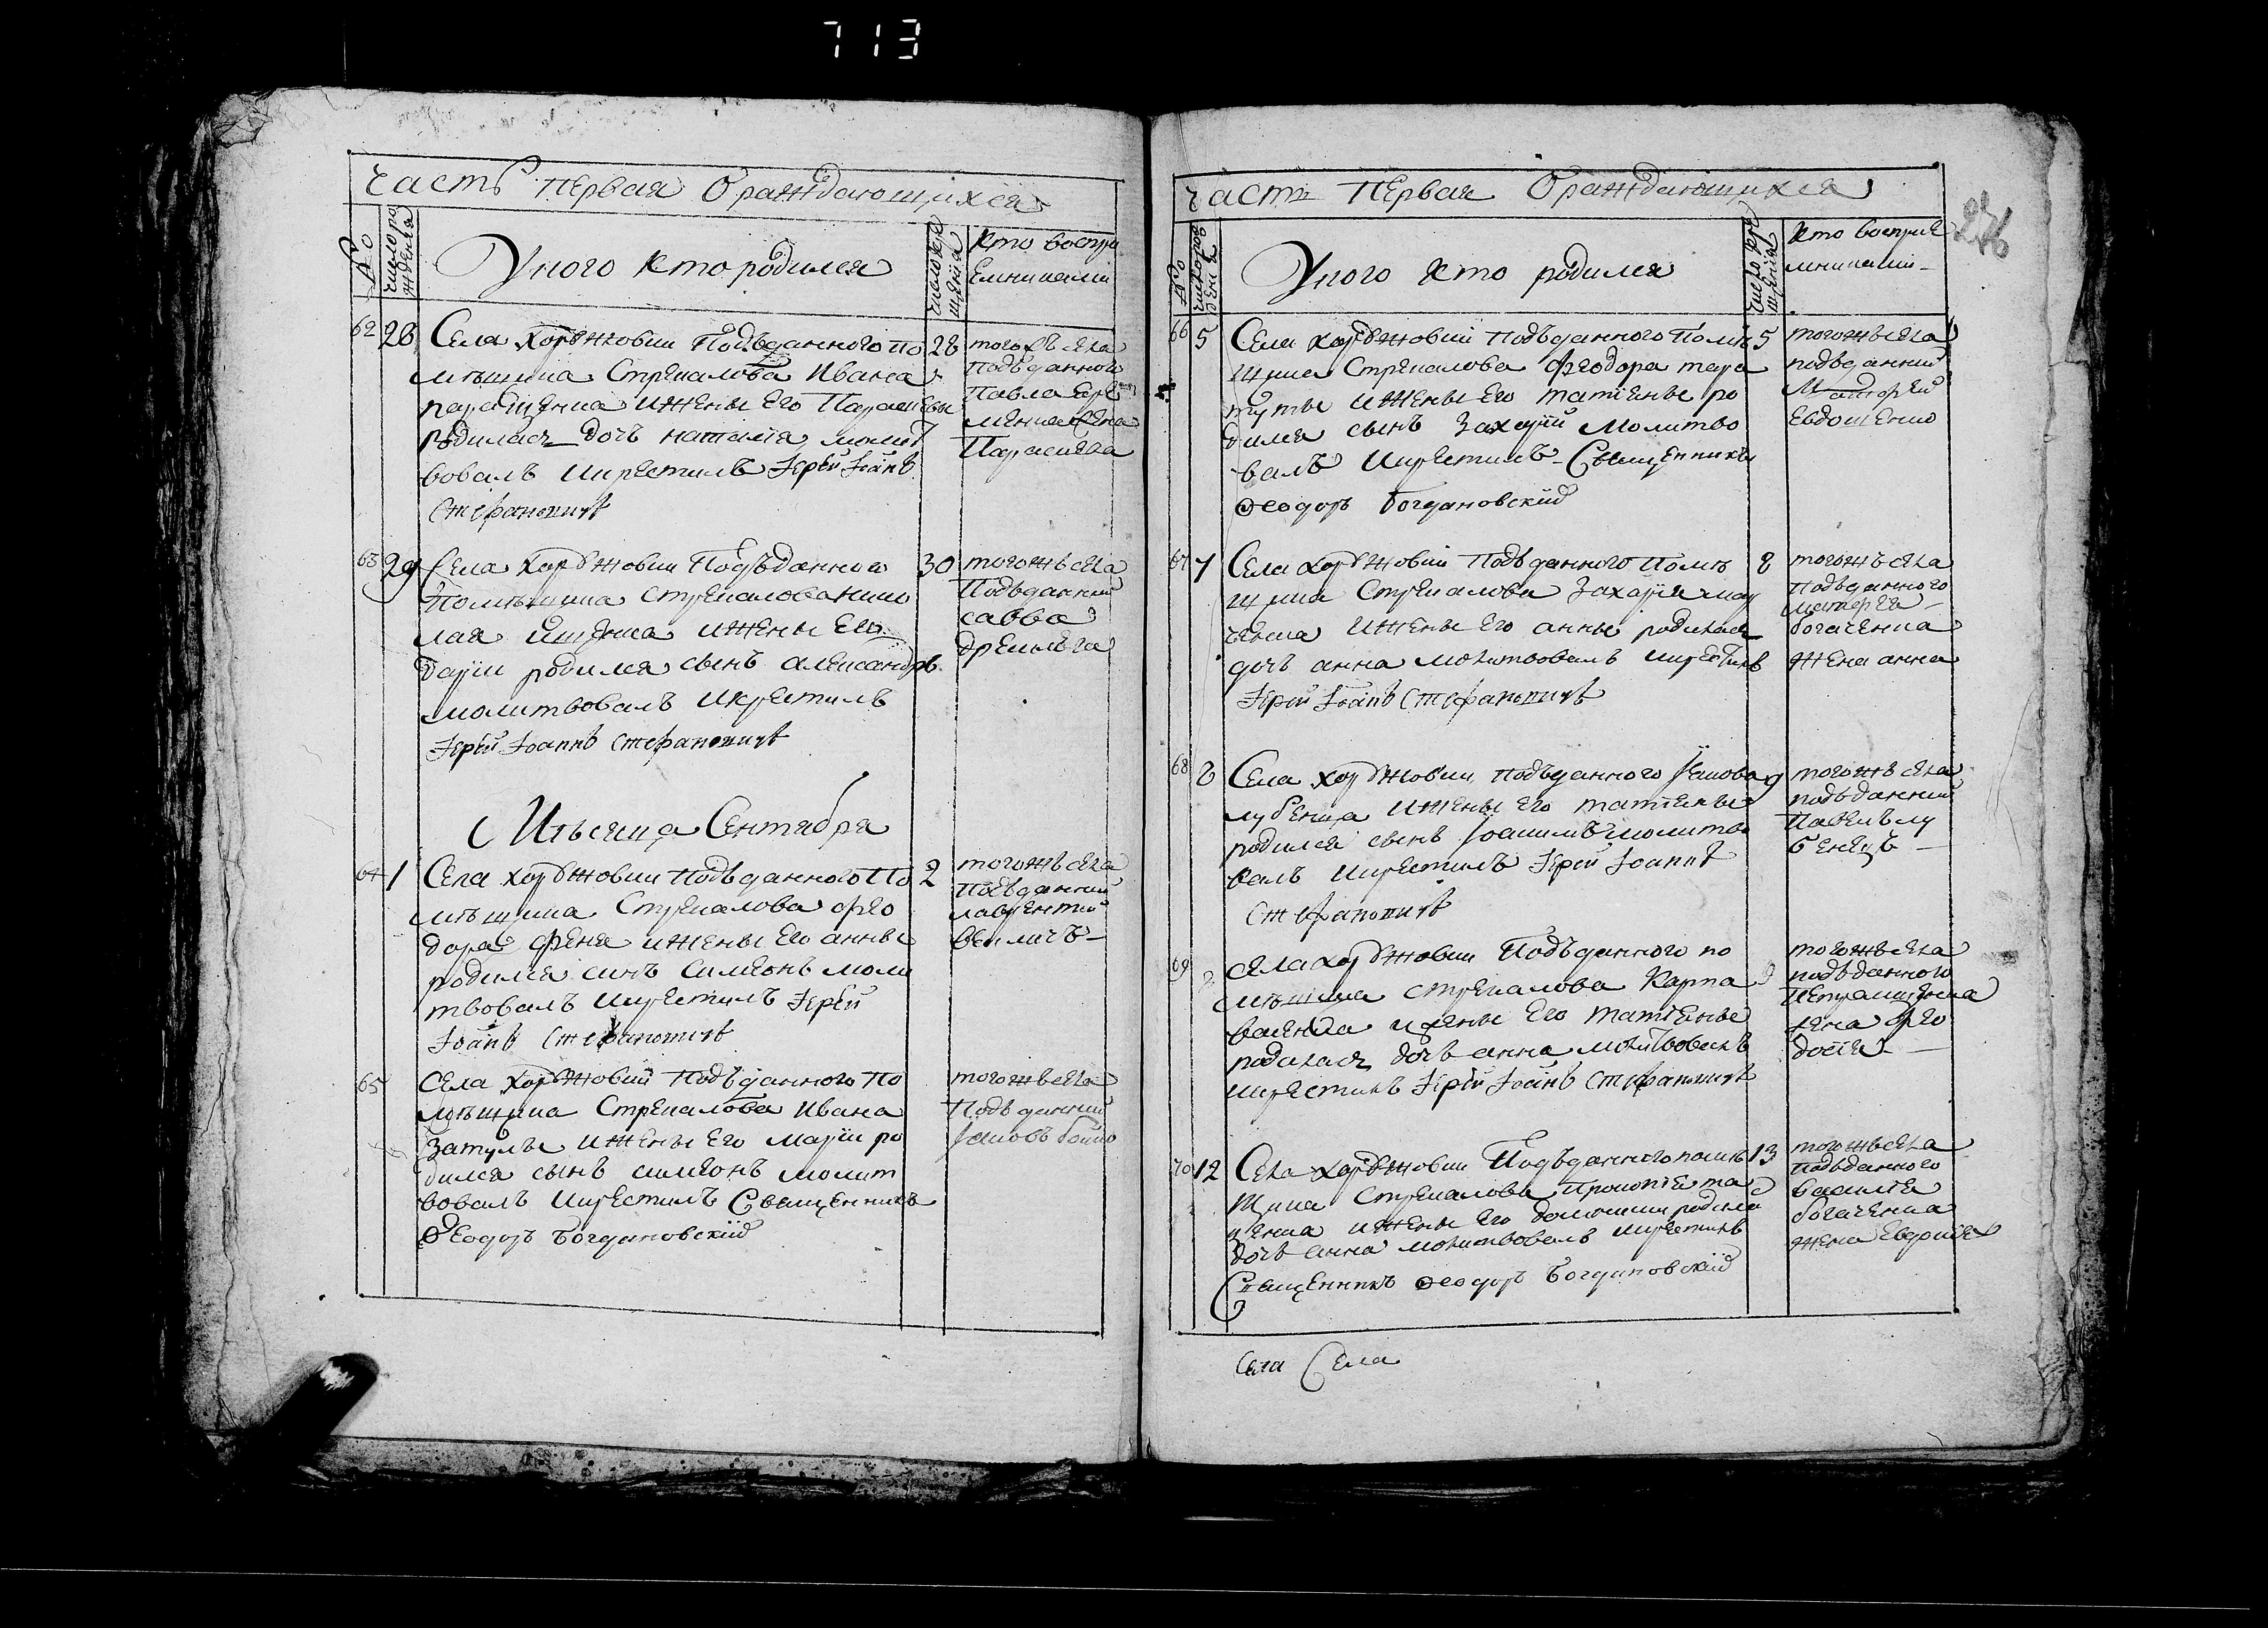 713
Часть первая О раждающихся
№о
число ро
ждения
У кого кто родился
число кре
щенія
Кто воспри
емниками
62 28 Села Хорѣжовки Подъданного по 28
мѣщика Стрекалова Ивана
жены его Параскевы
родилась дочь наталія молит
вовалъ икрестилъ Іерѣй Іоанъ
Стефановичъ
тогожъ села
Подъданного
Павла
жена
Параскева
63 29 Села Хорѣжовки Подъданного 30
Помѣщика Стрекалова нико
лая ижены Его
дарїи родился сынъ александръ
молитвовалъ икрестилъ
Іерѣй Іоаннъ Стефановичъ
тогожъ села
Подъданний
савва
дремлюга
Мѣсяца Сентября
64 1 Села Хорѣжовки Подъданного По 2
мѣщика Стрекалова фео
дора ижены Его анны
родился синъ Симеонъ моли
твовалъ икрестилъ Іерѣй
Іоанъ Стефановичъ
тогожъ села
Подъданний
лаврентий
65 Села Хорѣжовкй Подъданного По
мѣщика Стрекалова Ивана
Затулы ижены Его марїи ро
дился сынъ симеонъ молит
вовалъ икрестилъ Священникъ
Ѳеодоръ Богдановскїй
тогожъ села
Подъданний
Яковъ бойко
Часть Первая О раждающихся
276
№о
число рож
денія
У кого кто родился
Число кре
щенія
Кто восприе
мниками
66 5 Села Хорѣжовкй Подъданного Помѣ 5
щика Стрекалова Феодора тара
ижены Его татіяны ро
дился сынъ Захарїй Молитво
валъ икрестилъ Священникъ
Ѳеодоръ Богдановскїй
тогожъ села
подъданний
Матфей
Евдошенко
67 7 Села Хорѣжовкй Подъданного Помѣ 8
щика Стрекалова Захарїя
ижены Его анны родилась
дочь анна молитвовалъ икрестилъ
Іерей Іоанъ Стефановичъ
тогожъ села
Подъданного
матфея
богаченка
жена анна
68 8 Села Хорѣжовки подъданного Якова 9
лубенца ижены Его татіяны
родился сынъ Іоакимъ молитво
валъ икрестилъ Іерей Іоаннъ
Стефановичъ
тогожъ села
подъданний
Павелъ лу
бенецъ
69 села хорѣжовки Подъданного по
мѣщика стрекалова Карпа
ижены Его татіяны
родилась дочь анна молитвовалъ
икрестилъ Іерѣй Іоанъ Стефановичъ
тогожъ села
подъданного
жена фео
досія
70 12 Села хорѣжовки Подъданного помѣ 13
щика Стрекалова Прокопія
ижены Его родилась
дочь анна молитвовалъ икрестилъ
Священникъ Ѳеодоръ Богдановскїй
тогожъ села
Подъданного
Василія
богаченка
жена
Села Села